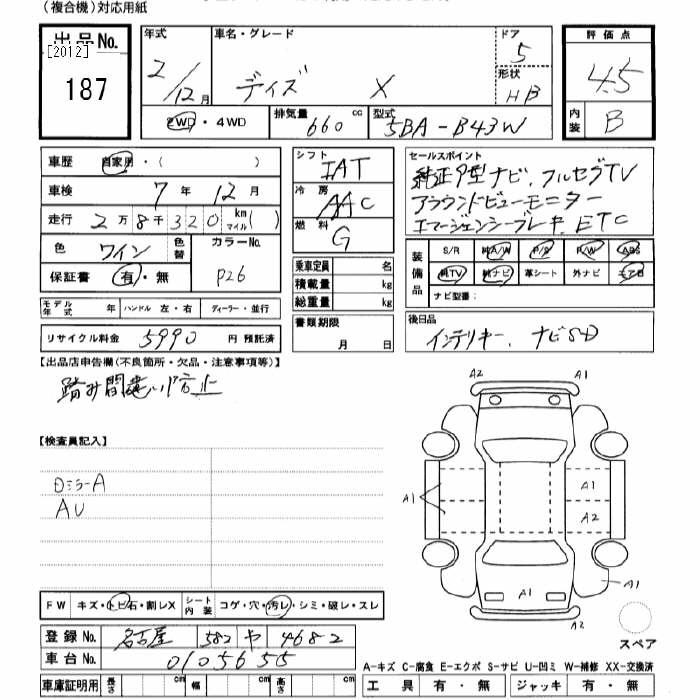 (複合機)対応用紙
出品No.
[2012]
187
年式
2/12月
車名・グレード
デイズ X
ドア
5
形状
HB
評価点
4.5
内装
B
2WD・4WD
排気量 660 cc
型式 5BA-B43W
車歴 自家用・( )
車検 7年 12月
走行 2万8千320 km マイル( )
色 ワイン
色替
カラーNo.
P26
保証書 有・無
モデル年式 年
ハンドル 左・右
ディーラー・並行
リサイクル料金 5990 円 預託済
シフト IAT
冷房 AAC
燃料 G
乗車定員 名
積載量 kg
総重量 kg
書類期限
月 日
セールスポイント
純正9型ナビ、フルセグTV
アラウンドビューモニター
エマージェンシーブレーキ、ETC
装備品
S/R 純A/W P/S P/W ABS
純TV 純ナビ 革シート 外ナビ エアB
ナビ型番:
後日品
インテリキー、ナビSD
【出品店申告欄(不良箇所・欠品・注意事項等)】
踏み間違い防止
【検査員記入】
DミラーA
AU
A2 A1
A1 A1
A2
A1
A1
A2
スペア
FW キズ・トビ石・割レX
シート内装 コゲ・穴・汚レ・シミ・破レ・スレ
登録No. 名古屋 582 ヤ 4682
車台No. 0105655
車庫証明用 長さ cm 幅 cm 高さ cm
A-キズ C-腐食 E-エクボ S-サビ U-凹ミ W-補修 XX-交換済
工具 有・無 ジャッキ 有・無